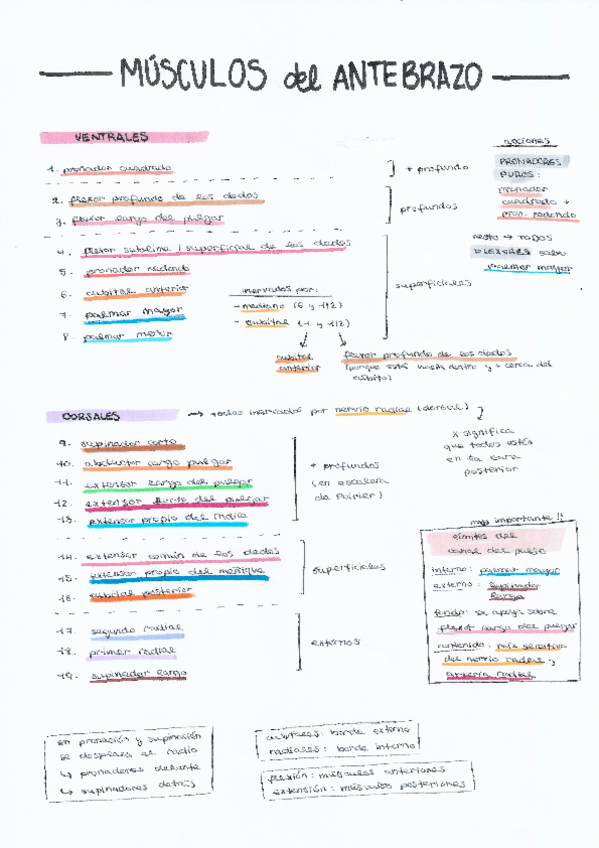 MÚSCULOS del ANTEBRAZO
VENTRALES
1. pronador cuadrado
+ profundo
2. flexor profundo de los dedos
3. flexor largo del pulgar
profundos
4. flexor sublime / superficial de los dedos
5. pronador redondo
6. cubital anterior
7. palmar mayor
8. palmar menor
superficiales
inervados por:
- mediano (6 y 1/2)
- cubital (1 y 1/2)
cubital anterior
flexor profundo de los dedos
(porque está más dentro y + cerca del
cúbito)
acciones
PRONADORES
PUROS:
pronador
cuadrado +
pron. redondo
resto → todos
FLEXORES salvo
palmar mayor
DORSALES → todos inervados por nervio radial (dorsal)
x significa
que todos están
en la cara
posterior
9. supinador corto
10. abductor largo pulgar
11. extensor largo del pulgar
12. extensor corto del pulgar
13. extensor propio del índice
+ profundos
(en escalera
de Poirier)
14. extensor común de los dedos
15. extensor propio del meñique
16. cubital posterior
superficiales
17. segundo radial
18. primer radial
19. supinador largo
externos
más importante !!
límites del
canal del pulso
interno: palmar mayor
externo: supinador
largo
fondo: se apoya sobre
flexor largo del pulgar
contenido: raíz sensitiva
del nervio radial y
arteria radial
en pronación y supinación
se desplaza el radio
↳ pronadores delante
↳ supinadores detrás
cubitales: borde externo
radiales: borde interno
flexión: músculos anteriores
extensión: músculos posteriores